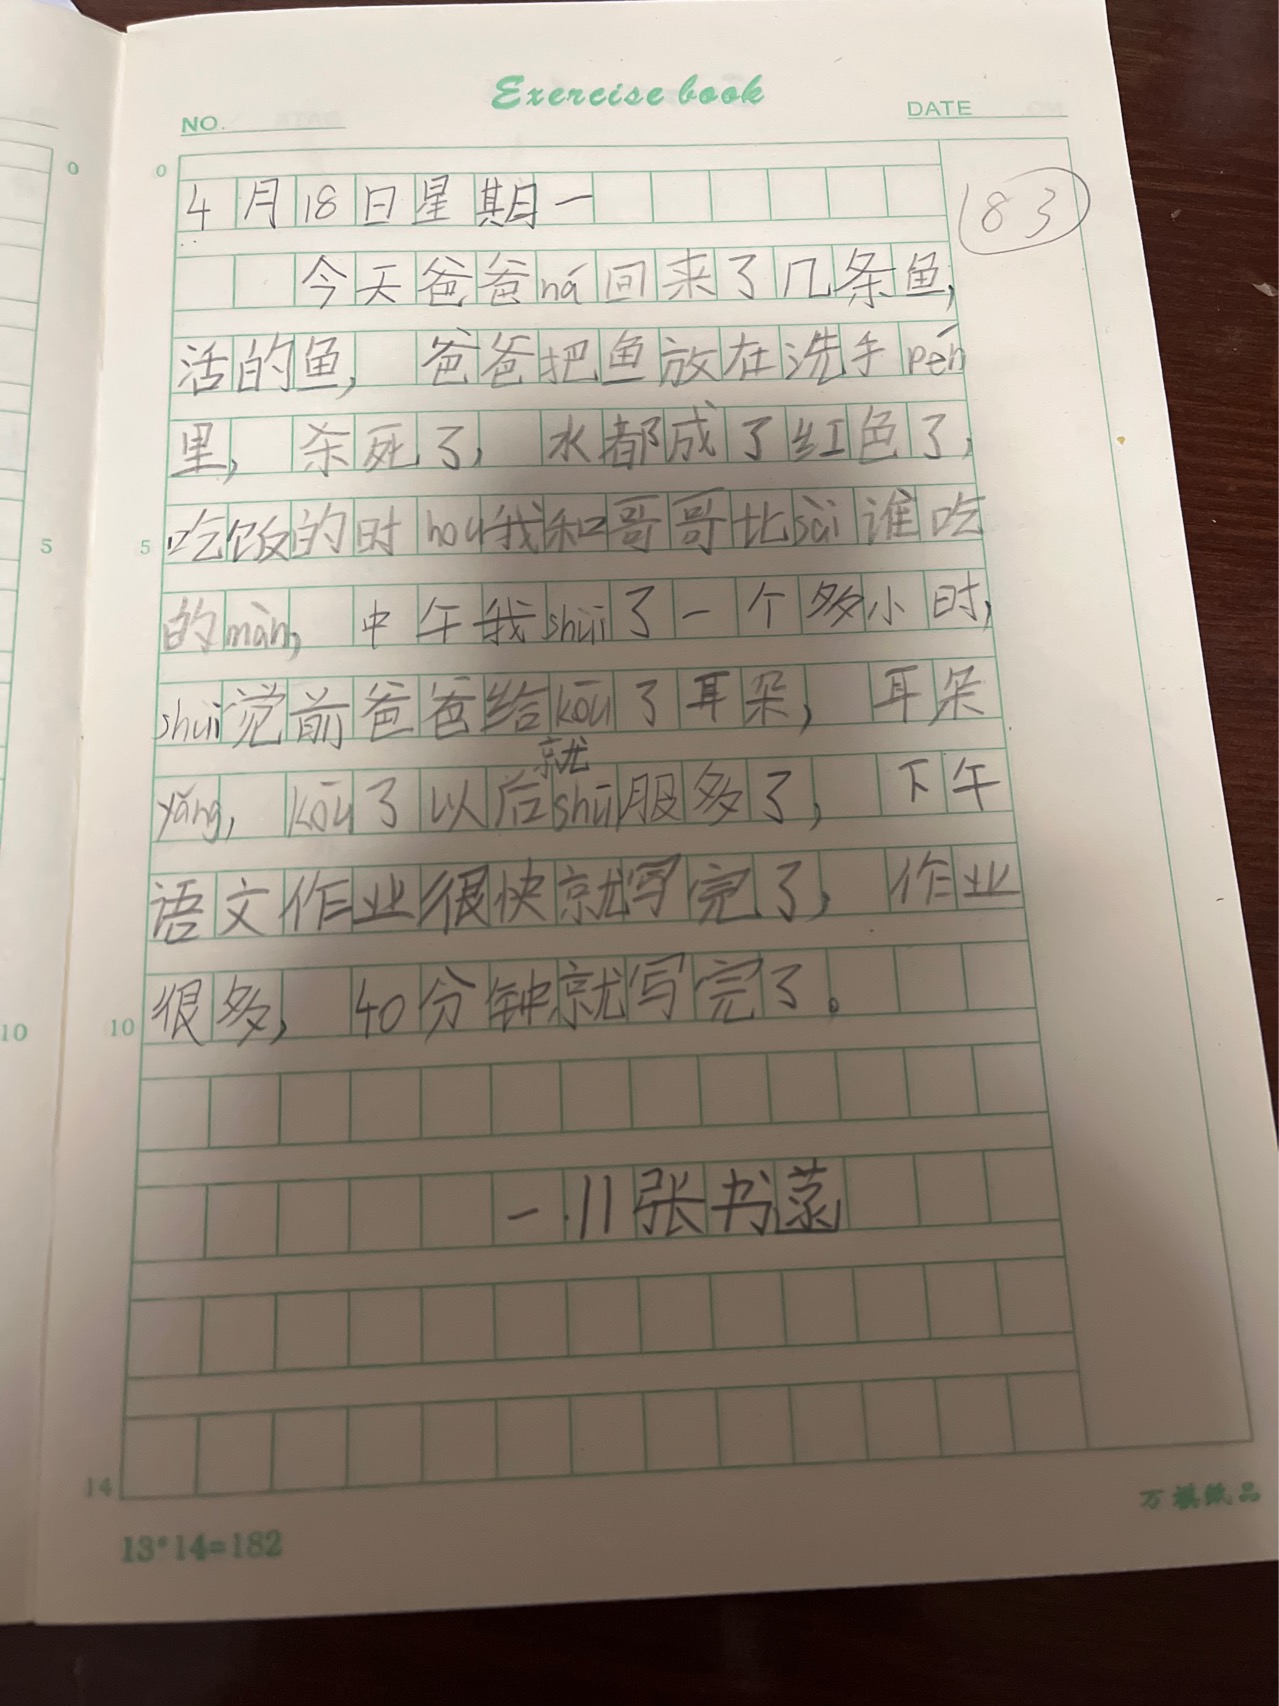 Exercise book
NO.
DATE
0
0
83
4月18日星期一
今天爸爸ná回来了几条鱼,
活的鱼, 爸爸把鱼放在洗手pén
里, 杀死了, 水都成了红色了,
5
5
吃饭的时hou我和哥哥比sài谁吃
的màn, 中午我shuì了一个多小时,
shuì觉前爸爸给kōu了耳朵, 耳朵
就
yǎng, kōu了以后shū服多了, 下午
语文作业很快就写完了, 作业
10
10
很多, 40分钟就写完了。
一.11张书菉
14
万祺纸品
13*14=182